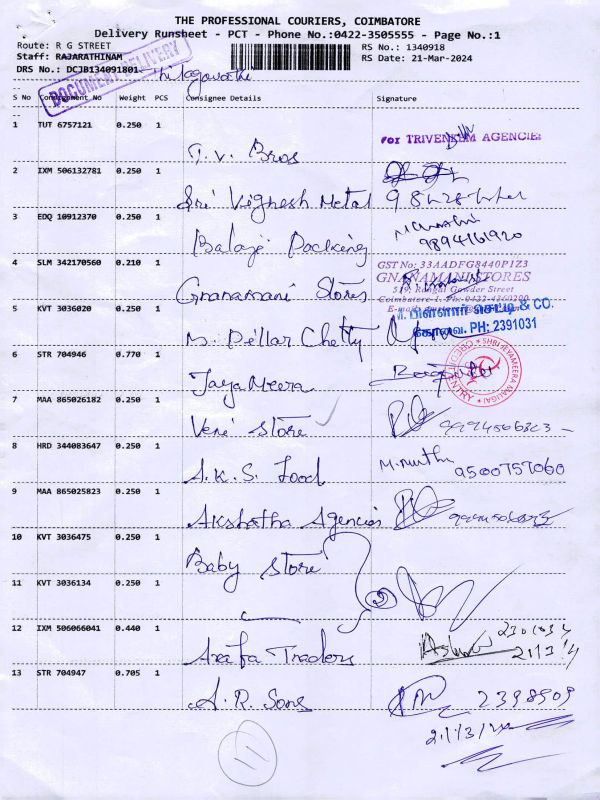 THE PROFESSIONAL COURIERS, COIMBATORE
Delivery Runsheet - PCT - Phone No.:0422-3505555 - Page No.:1
Route: R G STREET RS No.: 1340918
Staff: RAJARATHINAM RS Date: 21-Mar-2024
DRS No.: DCJB134091801
DOCUMENT DELIVERY
S No Consignment No Weight PCS Consignee Details Signature
1 TUT 6757121 0.250 1
For TRIVENEEM AGENCIES
T. V. Bros
2 IXM 506132781 0.250 1
Sri Vighesh Metal
3 EDQ 10912370 0.250 1
Balaji Packing 9894161920
4 SLM 342170560 0.210 1
GST No: 33AADFG8440P1Z3
GNANAMANI STORES
Gnanamani Stores
519, Rangai Gowder Street
Coimbatore-1. Ph: 0422-4360200
5 KVT 3036020 0.250 1
& CO.
கோவை. PH: 2391031
M. Pillar Chetty
6 STR 704946 0.770 1
SHRI JEYAMEERA MALIGAI
Jaya Meera
7 MAA 865026182 0.250 1
Veni Store
8 HRD 344083647 0.250 1
A.K.S. Food 9500757060
9 MAA 865025823 0.250 1
Akshatha Agencies
10 KVT 3036475 0.250 1
Baby Store
11 KVT 3036134 0.250 1
12 IXM 506066041 0.440 1
Arafa Traders
13 STR 704947 0.705 1
A. R. Sons 2398909
11